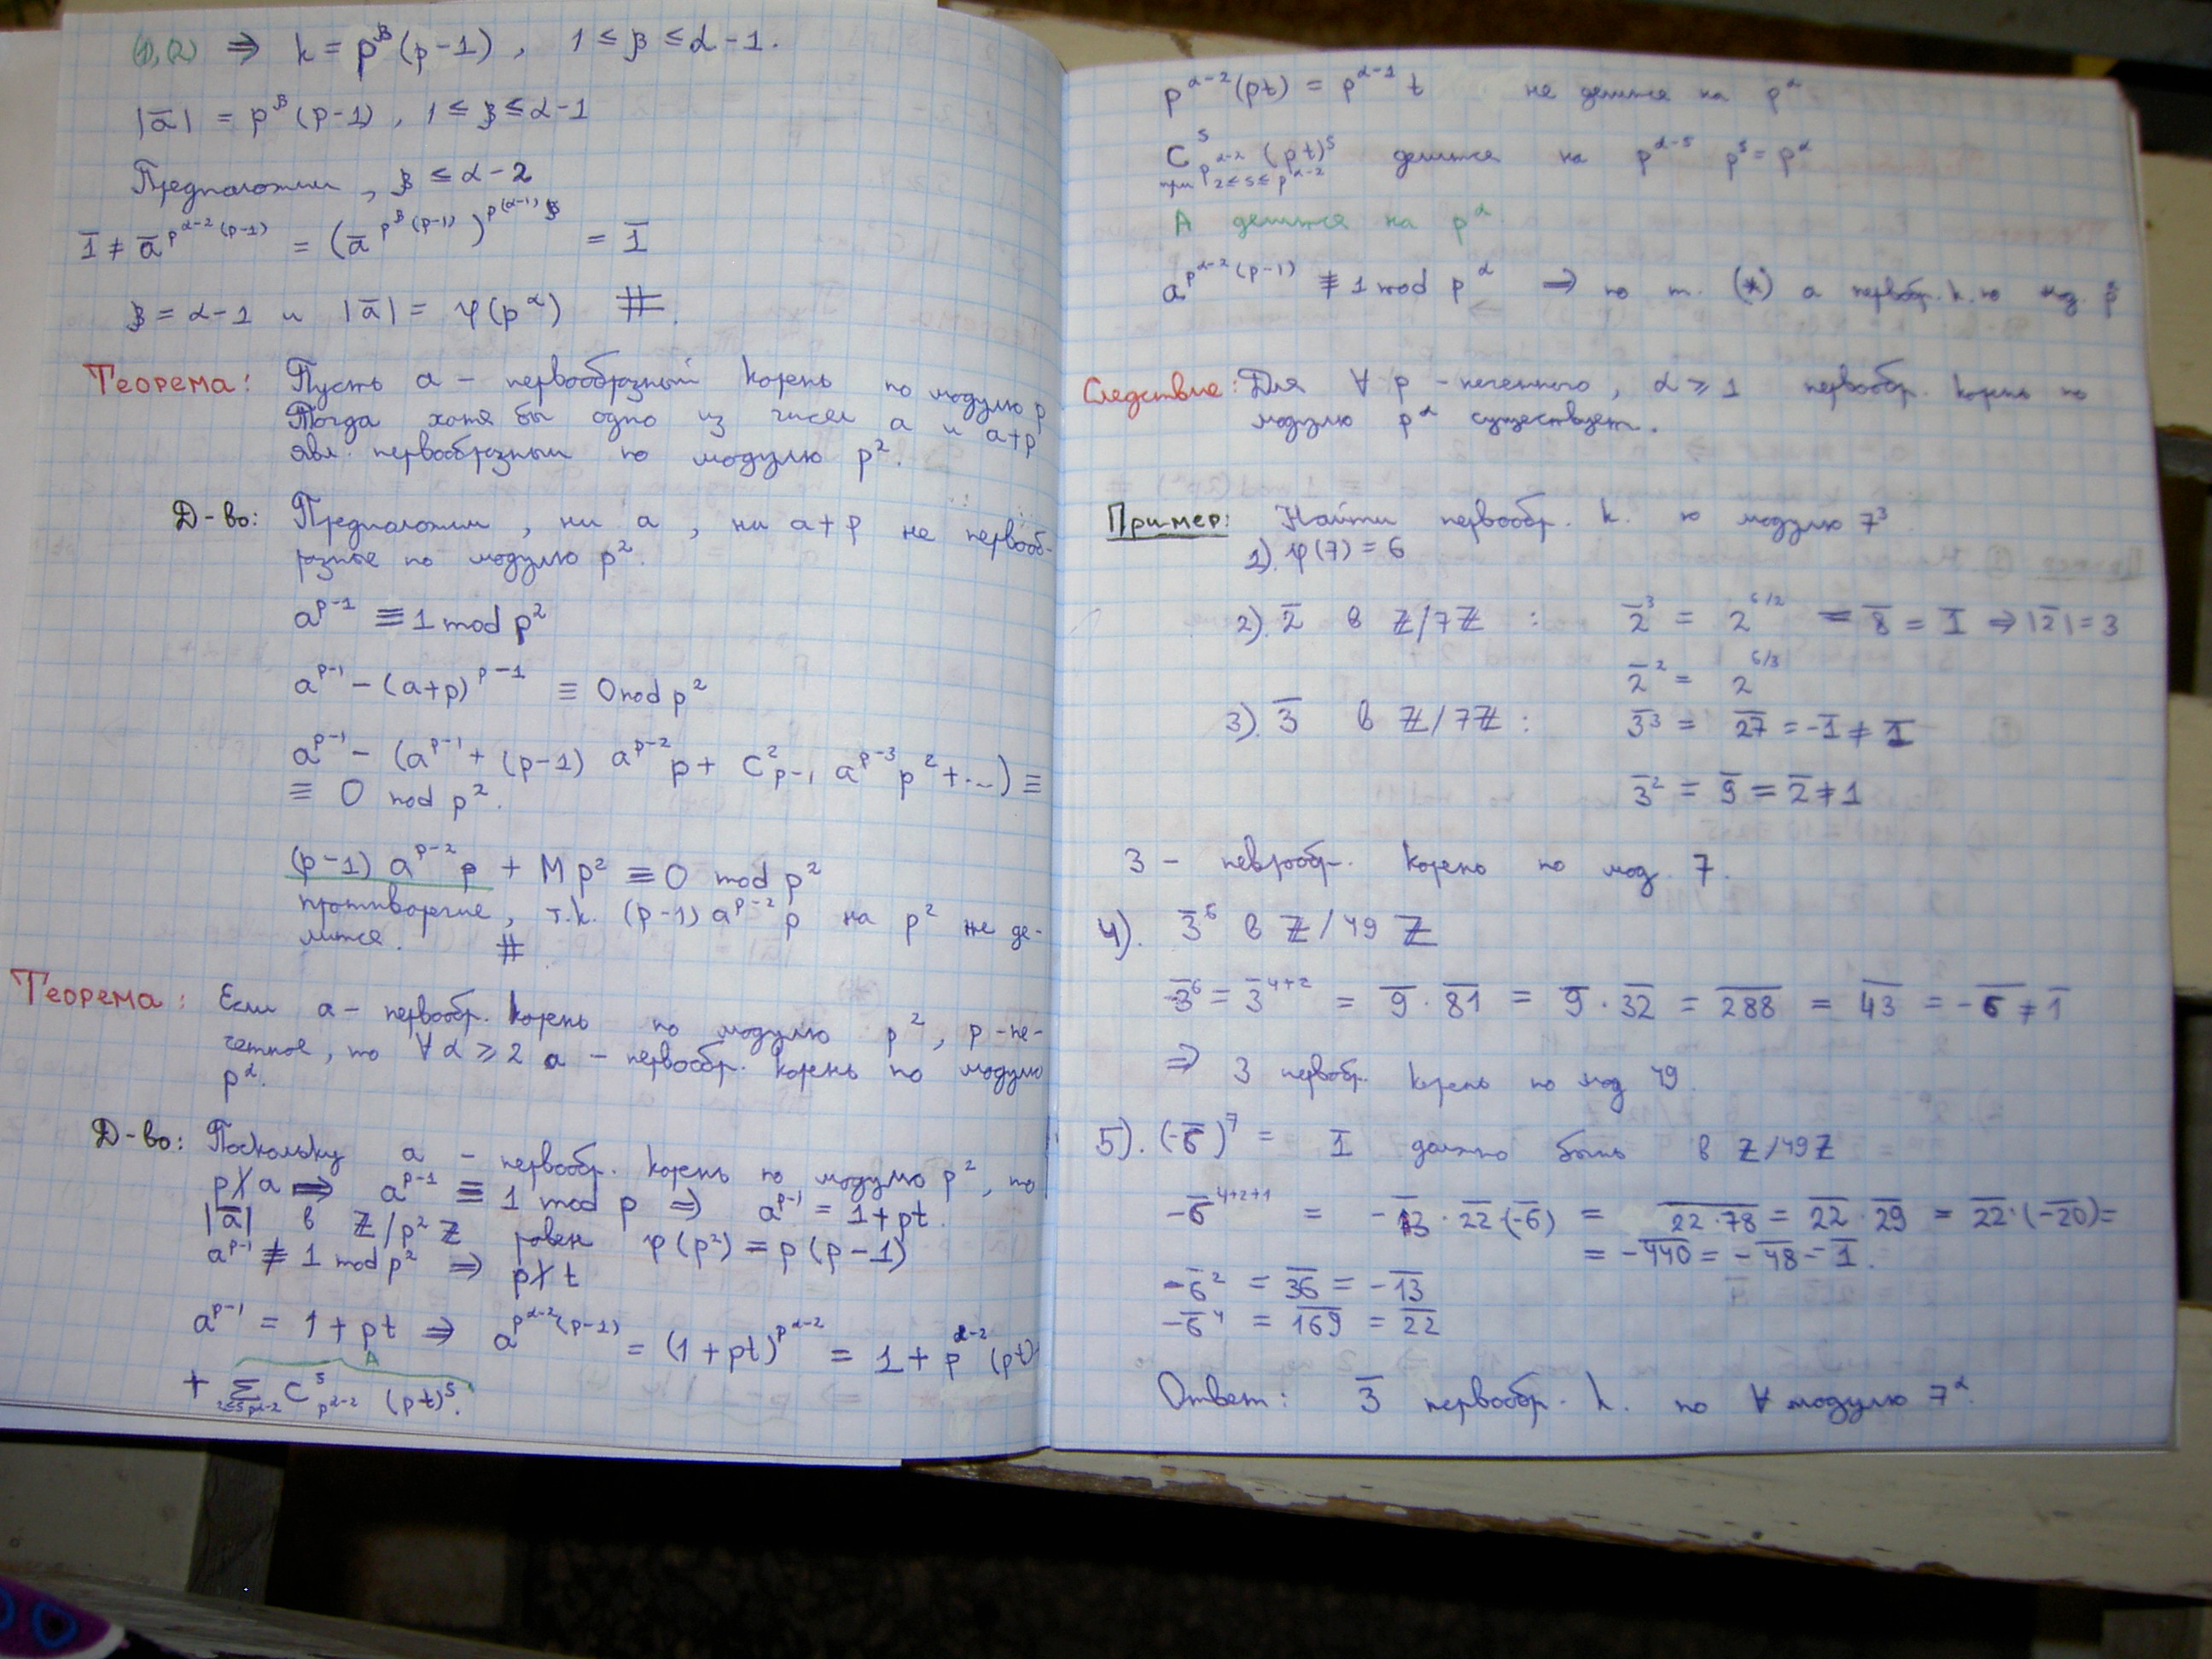 (1,2) ⇒ k = p^β (p-1), 1 ≤ β ≤ α-1.
|ā| = p^β (p-1), 1 ≤ β ≤ α-1
Предположим, β ≤ α-2
1̄ ≠ ā^{p^{α-2}(p-1)} = (ā^{p^β(p-1)})^{p^{(α-1)-β}} = 1̄
β = α-1 и |ā| = φ(p^α) #.
Теорема: Пусть a – первообразный корень по модулю p
Тогда хотя бы одно из чисел a и a+p
явл. первообразным по модулю p².
Д-во: Предположим, ни a, ни a+p не первооб-
разные по модулю p².
a^{p-1} ≡ 1 mod p²
a^{p-1} - (a+p)^{p-1} ≡ 0 mod p²
a^{p-1} - (a^{p-1} + (p-1) a^{p-2} p + C²_{p-1} a^{p-3} p² + ...) ≡
≡ 0 mod p².
(p-1) a^{p-2} p + M p² ≡ 0 mod p²
противоречие, т.к. (p-1) a^{p-2} p на p² не де-
лится. #
Теорема: Если a – первообр. корень по модулю p², p – не-
четное, то ∀ α ≥ 2 a – первообр. корень по модулю
p^α.
Д-во: Поскольку a – первообр. корень по модулю p², то
p∤a ⇒ a^{p-1} ≡ 1 mod p ⇒ a^{p-1} = 1+pt.
|ā| в Z/p²Z равен φ(p²) = p(p-1)
a^{p-1} ≢ 1 mod p² ⇒ p∤t
a^{p-1} = 1+pt ⇒ a^{p^{α-2}(p-1)} = (1+pt)^{p^{α-2}} = 1 + p^{α-2} (pt)
A
+ Σ_{2≤s≤p^{α-2}} C^s_{p^{α-2}} (pt)^s.
p^{α-2}(pt) = p^{α-1} t не делится на p^α
C^s_{p^{α-2}} (pt)^s делится на p^{α-s} p^s = p^α
при 2≤s≤p^{α-2}
A делится на p^α.
a^{p^{α-2}(p-1)} ≢ 1 mod p^α ⇒ по т. (*) a первообр. к. по мод. p^α
Следствие: Для ∀ p – нечетного, α ≥ 1 первообр. корень по
модулю p^α существует.
Пример: Найти первообр. к. по модулю 7³
1). φ(7) = 6
2). 2̄ в Z/7Z : 2̄³ = 2^{6/2} = 8̄ = 1̄ ⇒ |2̄| = 3
2̄² = 2^{6/3}
3). 3̄ в Z/7Z : 3̄³ = 27̄ = -1̄ ≠ 1̄
3̄² = 9̄ = 2̄ ≠ 1
3 – певрообр. корень по мод. 7.
4). 3̄⁶ в Z/49Z
3̄⁶ = 3̄^{4+2} = 9̄ · 81̄ = 9̄ · 32̄ = 288̄ = 43̄ = -6̄ ≠ 1̄
⇒ 3 первобр. корень по мод 49.
5). (-6̄)⁷ = 1̄ должно быть в Z/49Z
-6̄^{4+2+1} = -13̄ · 22̄ (-6̄) = 22·78 = 22̄ · 29̄ = 22̄ · (-20̄) =
= -440̄ = -48̄ = 1̄.
-6̄² = 36̄ = -13̄
-6̄⁴ = 169̄ = 22̄
Ответ: 3̄ первообр. к. по ∀ модулю 7^α.